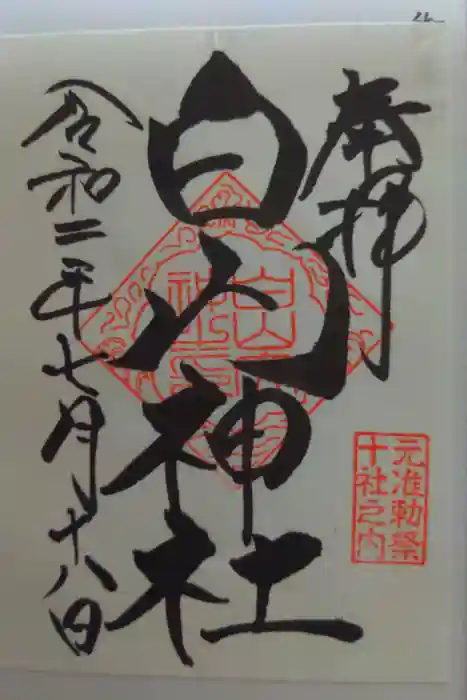 奉拝
白山神社
令和二年七月十八日
元准勅祭
十社之内